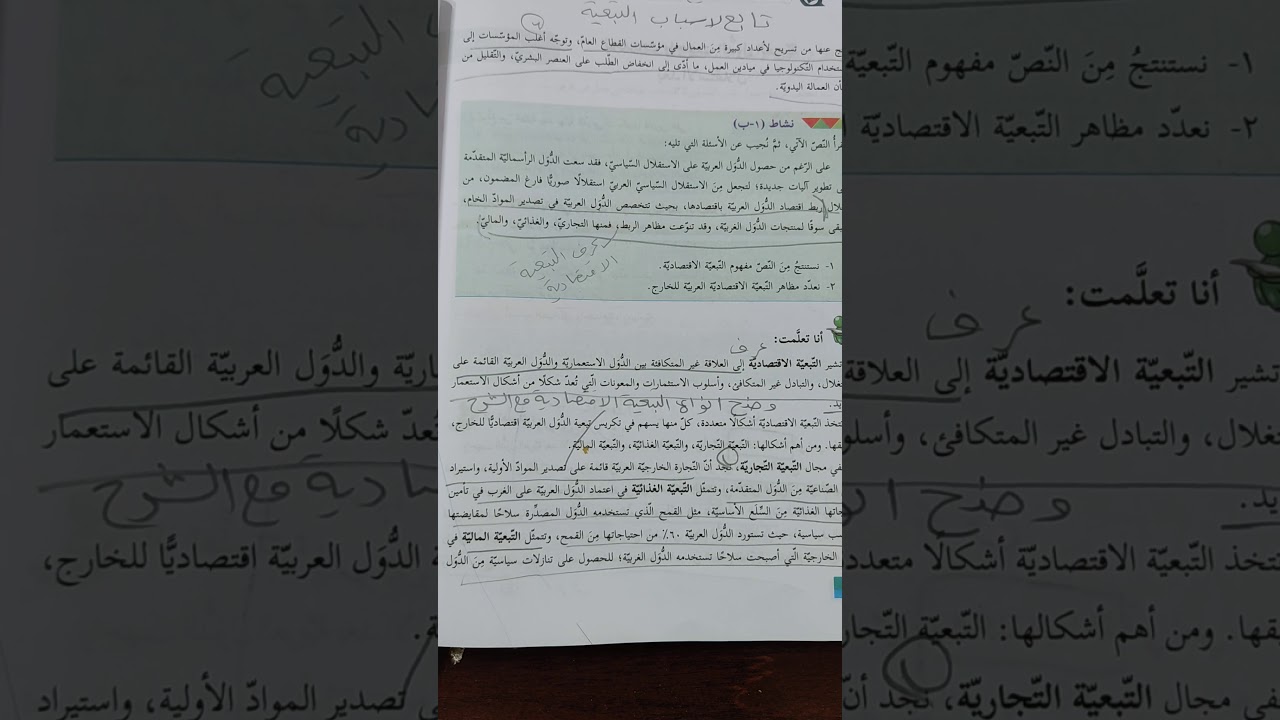 تابع لأسباب التبعية
عنها من تسريح لأعداد كبيرة مِنَ العمال في مؤسّسات القطاع العامّ، وتوجّه أغلب المؤسّسات إلى
ستخدام التّكنولوجيا في ميادين العمل، ما أدّى إلى انخفاض الطّلب على العنصر البشريّ، والتّقليل من
أن العمالة اليدويّة.
نشاط (١-ب)
قرأُ النّصّ الآتي، ثمّ نُجيب عن الأسئلة التي تليه:
على الرّغم من حصول الدُّوَل العربيّة على الاستقلال السّياسيّ، فقد سعت الدُّوَل الرأسماليّة المتقدّمة
تطوير آليات جديدة؛ لتجعل مِنَ الاستقلال السّياسيّ العربيّ استقلالًا صوريًّا فارغ المضمون، من
لال ربط اقتصاد الدُّوَل العربيّة باقتصادها، بحيث تتخصص الدُّوَل العربيّة في تصدير الموادّ الخام،
بقى سوقًا لمنتجات الدُّوَل الغربيّة، وقد تنوّعت مظاهر الربط، فمنها التجاريّ، والغذائيّ، والماليّ.
عرف التبعية
الاقتصادية
١- نستنتجُ مِنَ النّصّ مفهوم التّبعيّة الاقتصاديّة.
٢- نعدّد مظاهر التّبعيّة الاقتصاديّة العربيّة للخارج.
أنا تعلَّمت:
عرف
تشير التّبعيّة الاقتصاديّة إلى العلاقة غير المتكافئة بين الدُّوَل الاستعماريّة والدُّوَل العربيّة القائمة على
تغلال، والتبادل غير المتكافئ، وأسلوب الاستثمارات والمعونات الّتي تُعدّ شكلًا من أشكال الاستعمار
يد.
وضح انواع التبعية الاقتصادية مع الشرح
تخذ التّبعيّة الاقتصاديّة أشكالًا متعددة، كلّ منها يسهم في تكريس تبعية الدُّوَل العربيّة اقتصاديًّا للخارج،
قها. ومن أهم أشكالها: التّبعيّة التّجاريّة، والتّبعيّة الغذائيّة، والتّبعيّة الماليّة.
ففي مجال التّبعيّة التّجاريّة، نجد أنّ التّجارة الخارجيّة العربيّة قائمة على تصدير الموادّ الأولية، واستيراد
الصّناعيّة مِنَ الدُّوَل المتقدّمة، وتتمثّل التّبعيّة الغذائيّة في اعتماد الدُّوَل العربيّة على الغرب في تأمين
جاتها الغذائيّة مِنَ السِّلَع الأساسيّة، مثل القمح الّذي تستخدمه الدُّوَل المصدّرة سلاحًا لمقايضتها
سب سياسية، حيث تستورد الدُّوَل العربيّة ٦٠٪ من احتياجاتها مِنَ القمح، وتتمثّل التّبعيّة الماليّة في
الخارجيّة الّتي أصبحت سلاحًا تستخدمه الدُّوَل الغربيّة؛ للحصول على تنازلات سياسيّة مِنَ الدُّوَل